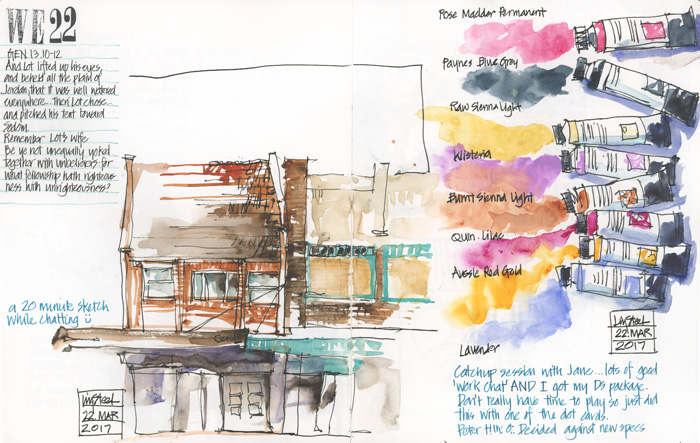 WE 22
GEN 13.10-12
And Lot lifted up his eyes,
and beheld all the plain of
Jordan, that it was well watered
everywhere... Then Lot chose...
and pitched his tent toward
Sodom.
Remember Lot's wife.
Be ye not unequally yoked
together with unbelievers: for
what fellowship hath righteous-
ness with unrighteousness?
a 20 minute sketch
while chatting
Liz Steel
22 MAR
2017
Rose Madder Permanent
Paynes Blue Gray
Raw Sienna Light
Wisteria
Burnt Sienna Light
Quin. Lilac
Aussie Red Gold
Lavender
Liz Steel
22 MAR
2017
Catchup session with Jane...lots of good
'work chat' AND I got my DS package.
Don't really have time to play so just did
this with one of the dot cards.
Peter O. Decided against new specs